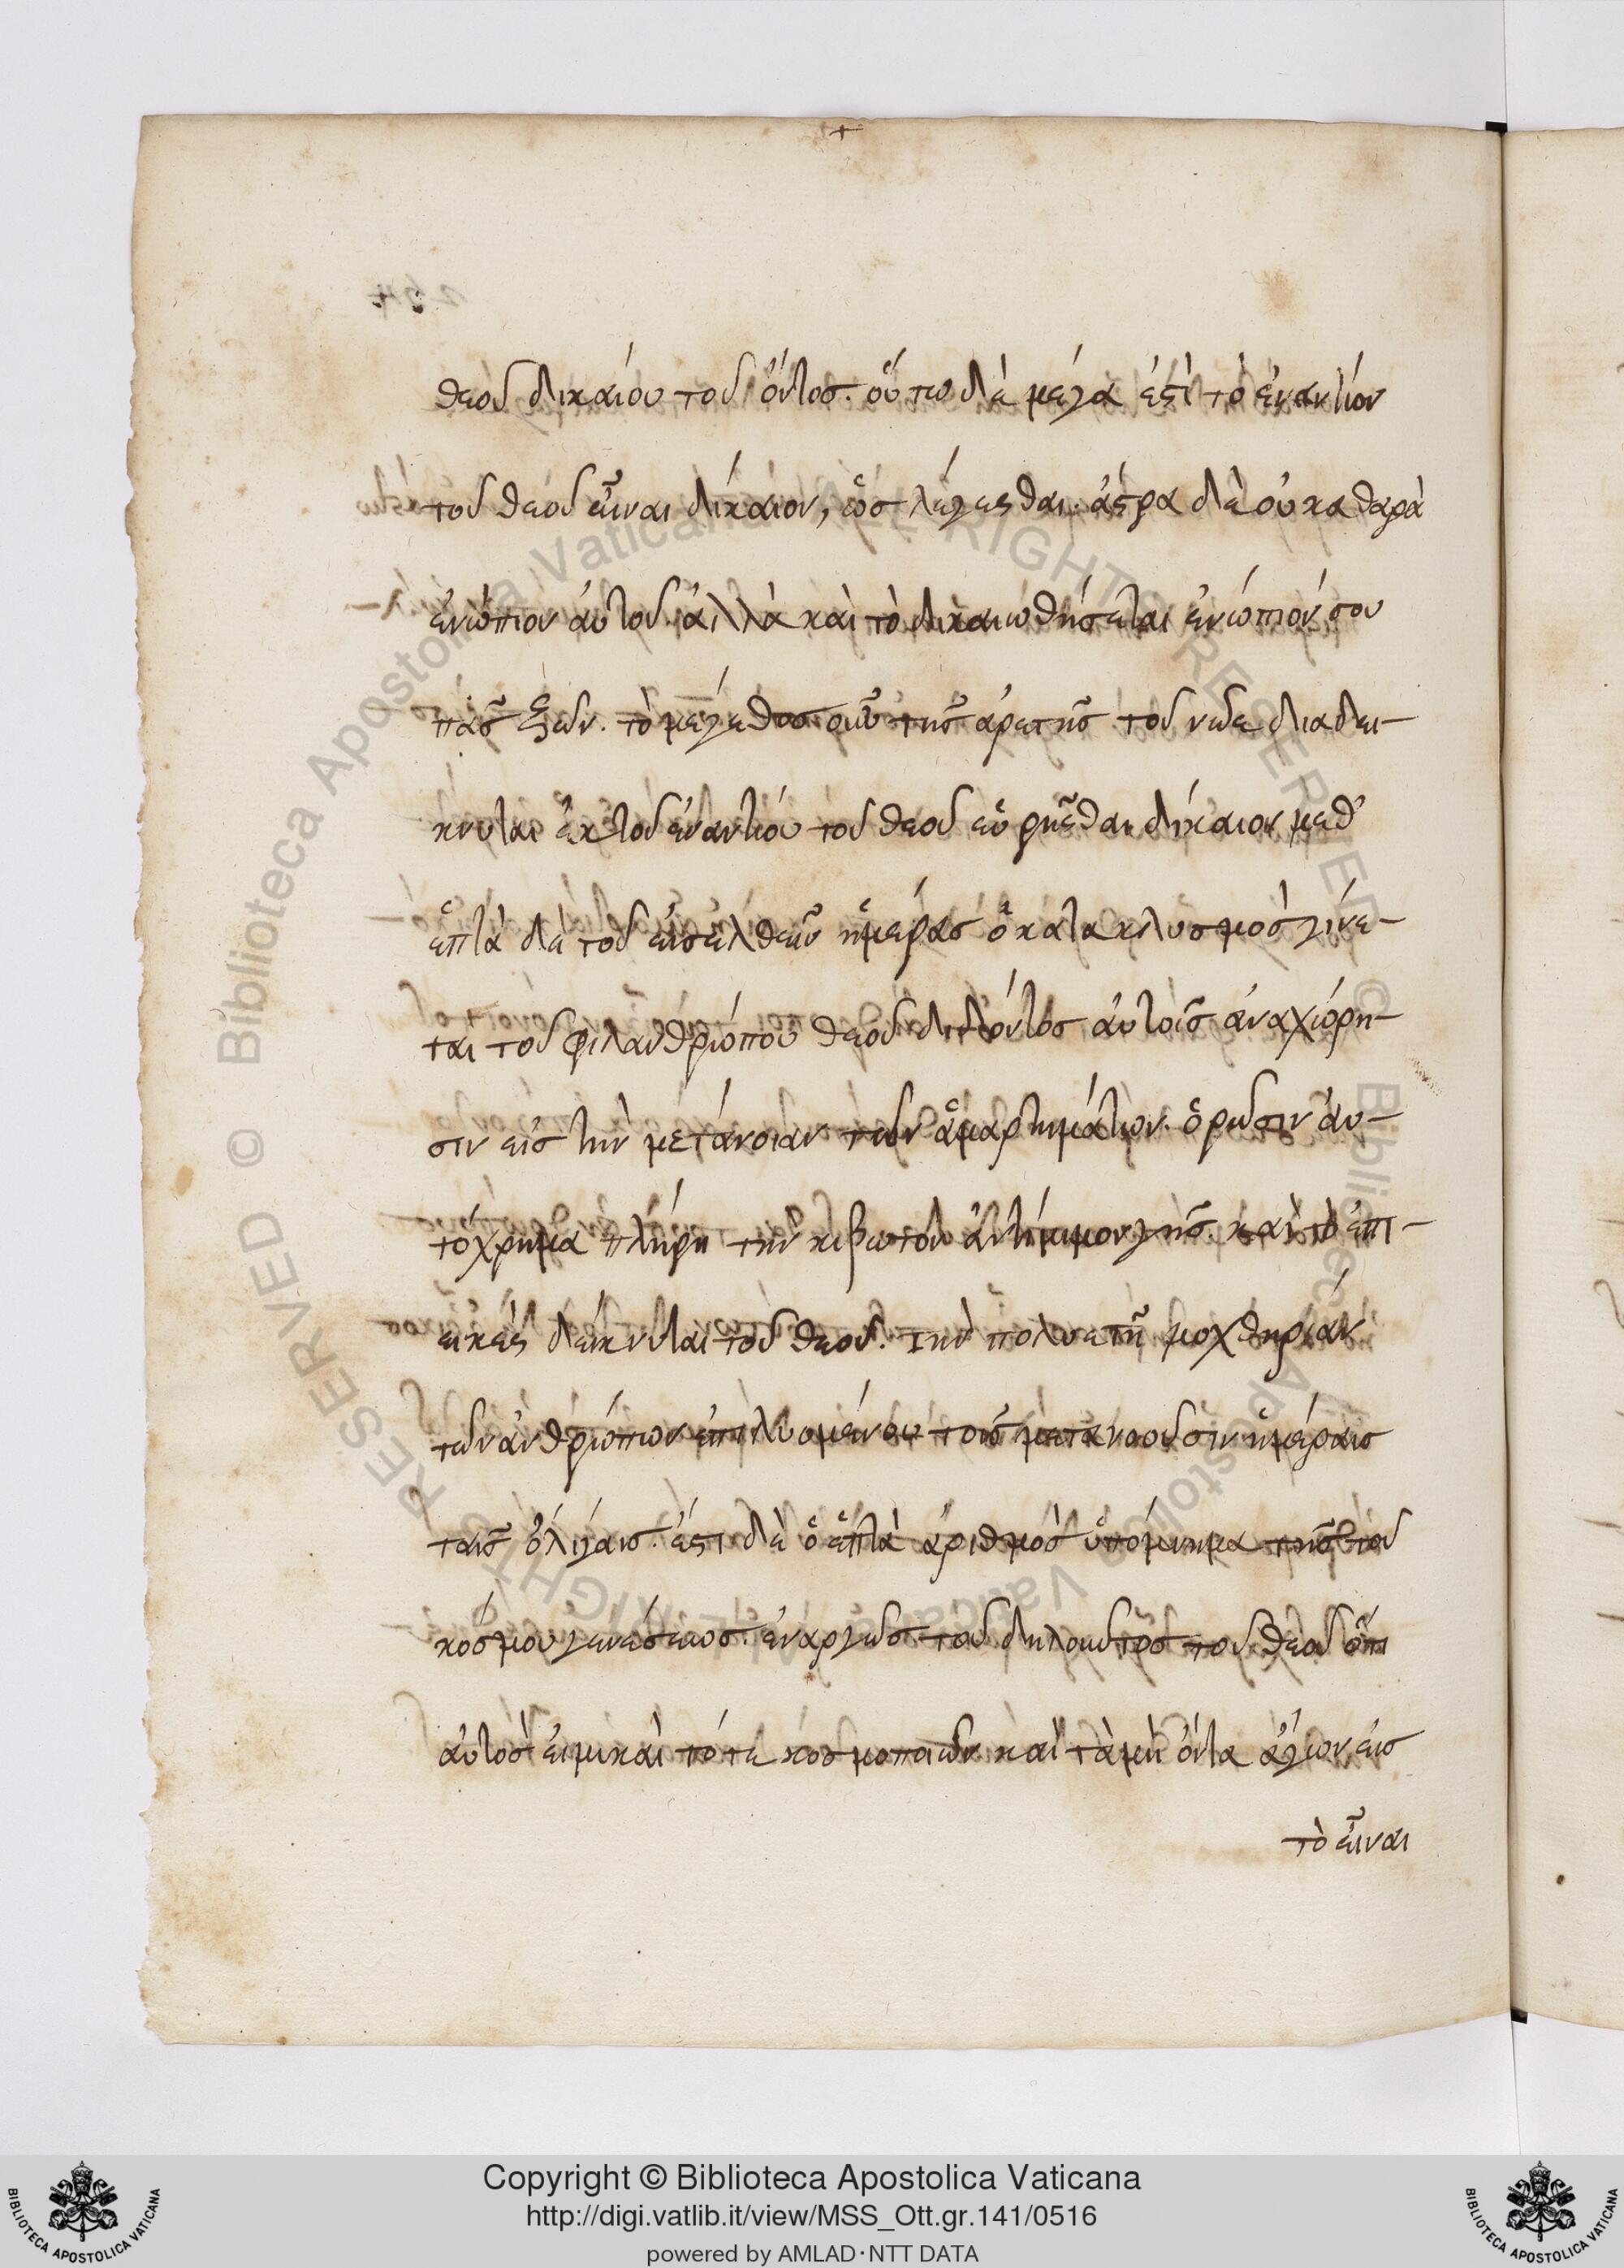 θεοῦ δικαίου τοῦ ὄντος. οὕτω δὲ μέγα ἐστὶ τὸ ἐναντίον
τοῦ θεοῦ εἶναι δίκαιον, ὡς λέγεσθαι. ἄστρα δὲ οὐ καθαρὰ
ἐνώπιον αὐτοῦ. ἀλλὰ καὶ τὸ δικαιωθήσεται ἐνώπιόν σου
πᾶς ζῶν. τὸ μέγεθος οὖν τῆς ἀρετῆς τοῦ νῶε διαδεί-
κνυται ἐκ τοῦ ἐναντίου τοῦ θεοῦ εὑρῆσθαι δίκαιον μεθ'
ἑπτὰ δὲ τοῦ εἰσελθεῖν ἡμέρας ὁ κατακλυσμὸς γίνε-
ται τοῦ φιλανθρώπου θεοῦ διδόντος αὐτοῖς ἀναχώρη-
σιν εἰς τὴν μετάνοιαν τῶν ἁμαρτημάτων. ὁρῶσιν αὐ-
τόχρημα πλήρη τὴν κιβωτὸν ἀντίμιμον γῆς. καὶ τὸ ἐπι-
εικὲς δείκνυται τοῦ θεοῦ. τὴν πολυετῆ μοχθηρίαν
τῶν ἀνθρώπων ἐπιλυομένου τοῖς μετανοοῦσιν ἡμέραις
ταῖς ὀλίγαις. ἔστι δὲ ὁ ἑπτὰ ἀριθμὸς ὑπόμνημα τῆς τοῦ
κόσμου γενέσεως. ἐναργῶς τοῦ δηλοῦντος τοῦ θεοῦ ὅτι
αὐτός εἰμι καὶ τότε κοσμοποιῶν καὶ τὰ μὴ ὄντα ἄγων εἰς
τὸ εἶναι
Copyright © Biblioteca Apostolica Vaticana
http://digi.vatlib.it/view/MSS_Ott.gr.141/0516
powered by AMLAD·NTT DATA